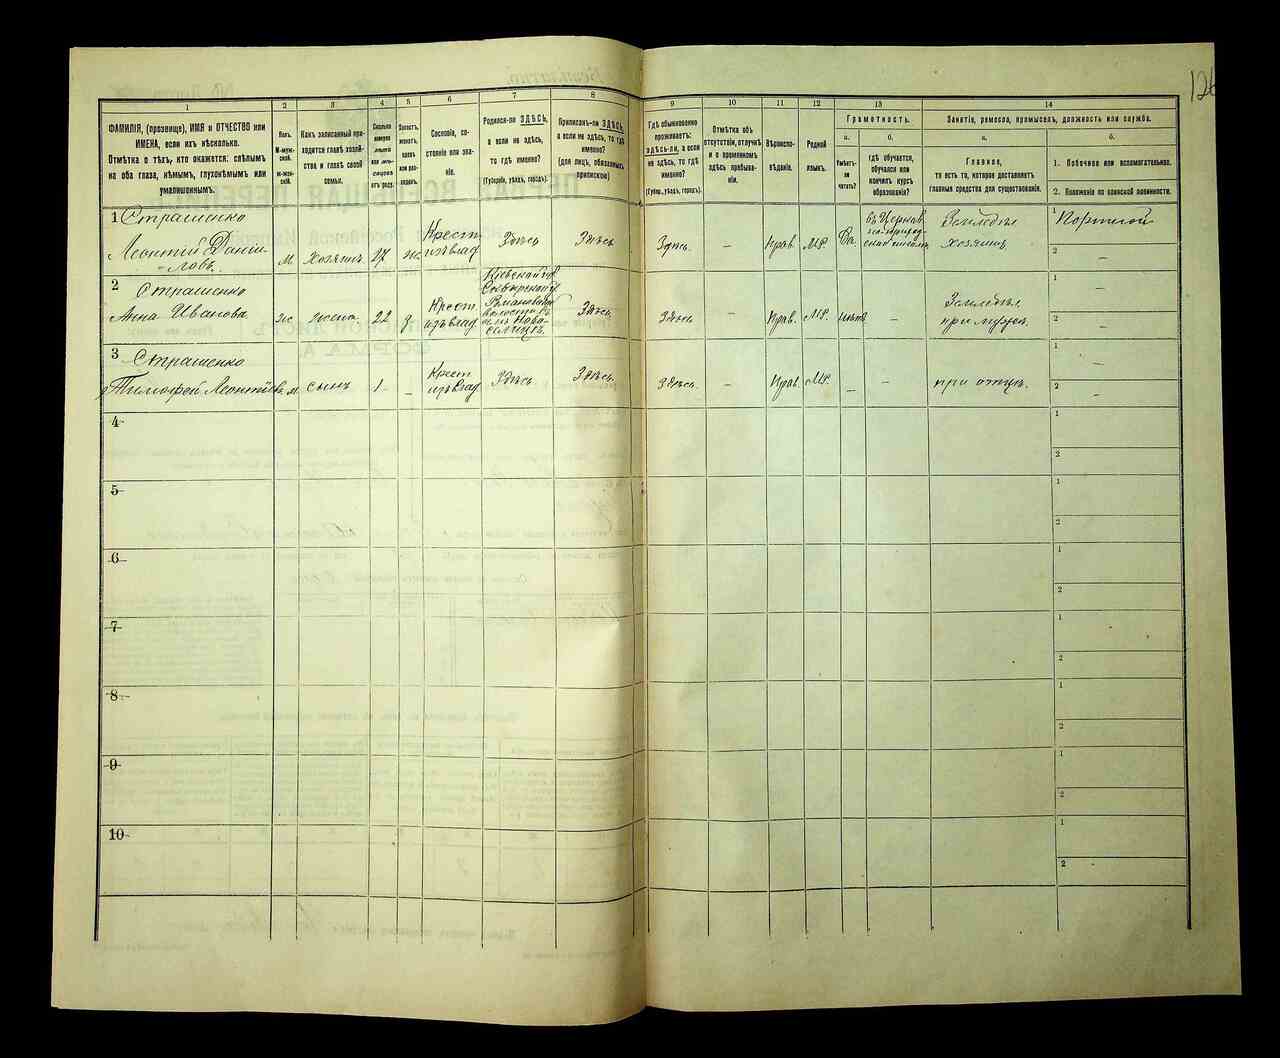 126
1
2
3
4
5
6
7
8
9
10
11
12
13
14
ФАМИЛІЯ, (прозвище), ИМЯ и ОТЧЕСТВО или
ИМЕНА, если ихъ нѣсколько.
Отмѣтка о тѣхъ, кто окажется: слѣпымъ
на оба глаза, нѣмымъ, глухонѣмымъ или
умалишеннымъ.
Полъ.
М-муж-
ской.
Ж-жен-
скій.
Какъ записанный при-
ходится главѣ хозяй-
ства и главѣ своей
семьи.
Сколько
минуло
лѣтъ
или мѣ-
сяцевъ
отъ роду.
Холостъ,
женатъ,
вдовъ
или раз-
веденъ.
Сословіе, со-
стояніе или зва-
ніе.
Родился-ли ЗДѢСЬ,
а если не здѣсь,
то гдѣ именно?
(Губернія, уѣздъ, городъ).
Приписанъ-ли ЗДѢСЬ,
а если не здѣсь, то гдѣ
именно?
(для лицъ, обязанныхъ
припискою)
Гдѣ обыкновенно
проживаетъ:
ЗДѢСЬ-ЛИ, а если
не здѣсь, то гдѣ
именно?
(Губер., уѣздъ, городъ).
Отмѣтка объ
отсутствіи, отлучкѣ
и о временномъ
здѣсь пребыва-
ніи.
Вѣроиспо-
вѣданіе.
Родной
языкъ.
Грамотность.
а.
б.
Умѣетъ-
ли
читать?
гдѣ обучается,
обучался или
кончилъ курсъ
образованія?
Занятіе, ремесло, промыселъ, должность или служба.
а.
б.
Главное,
то есть то, которое доставляетъ
главныя средства для существованія.
1. Побочное или вспомогательное.
2. Положеніе по воинской повинности.
1 Страшенко
Леонтій Даніи-
ловъ
м
хозяинъ
27
ж
Крест.
изъ влад
Здѣсь
Здѣсь
Здѣсь
–
Прав.
МР.
Да
въ Церков.
но-приход-
ской школѣ
Земледѣл.
хозяинъ
1 Портной
2 –
2 Страшенко
Анна Иванова
ж
жена
22
з
Крест.
изъ влад
Кіевской г.
Сквирской у.
Романовской
волости
Здѣсь
Здѣсь
–
Прав.
МР.
нѣтъ
–
Земледѣл.
при мужѣ
1 –
2 –
3 Страшенко
Тимофей Леонтіевъ
м
сынъ
1
–
Крест
изъ влад
Здѣсь
Здѣсь
Здѣсь
–
Прав.
МР.
–
–
при отцѣ
1 –
2 –
4
1
2
5
1
2
6
1
2
7
1
2
8
1
2
9
1
2
10
1
2